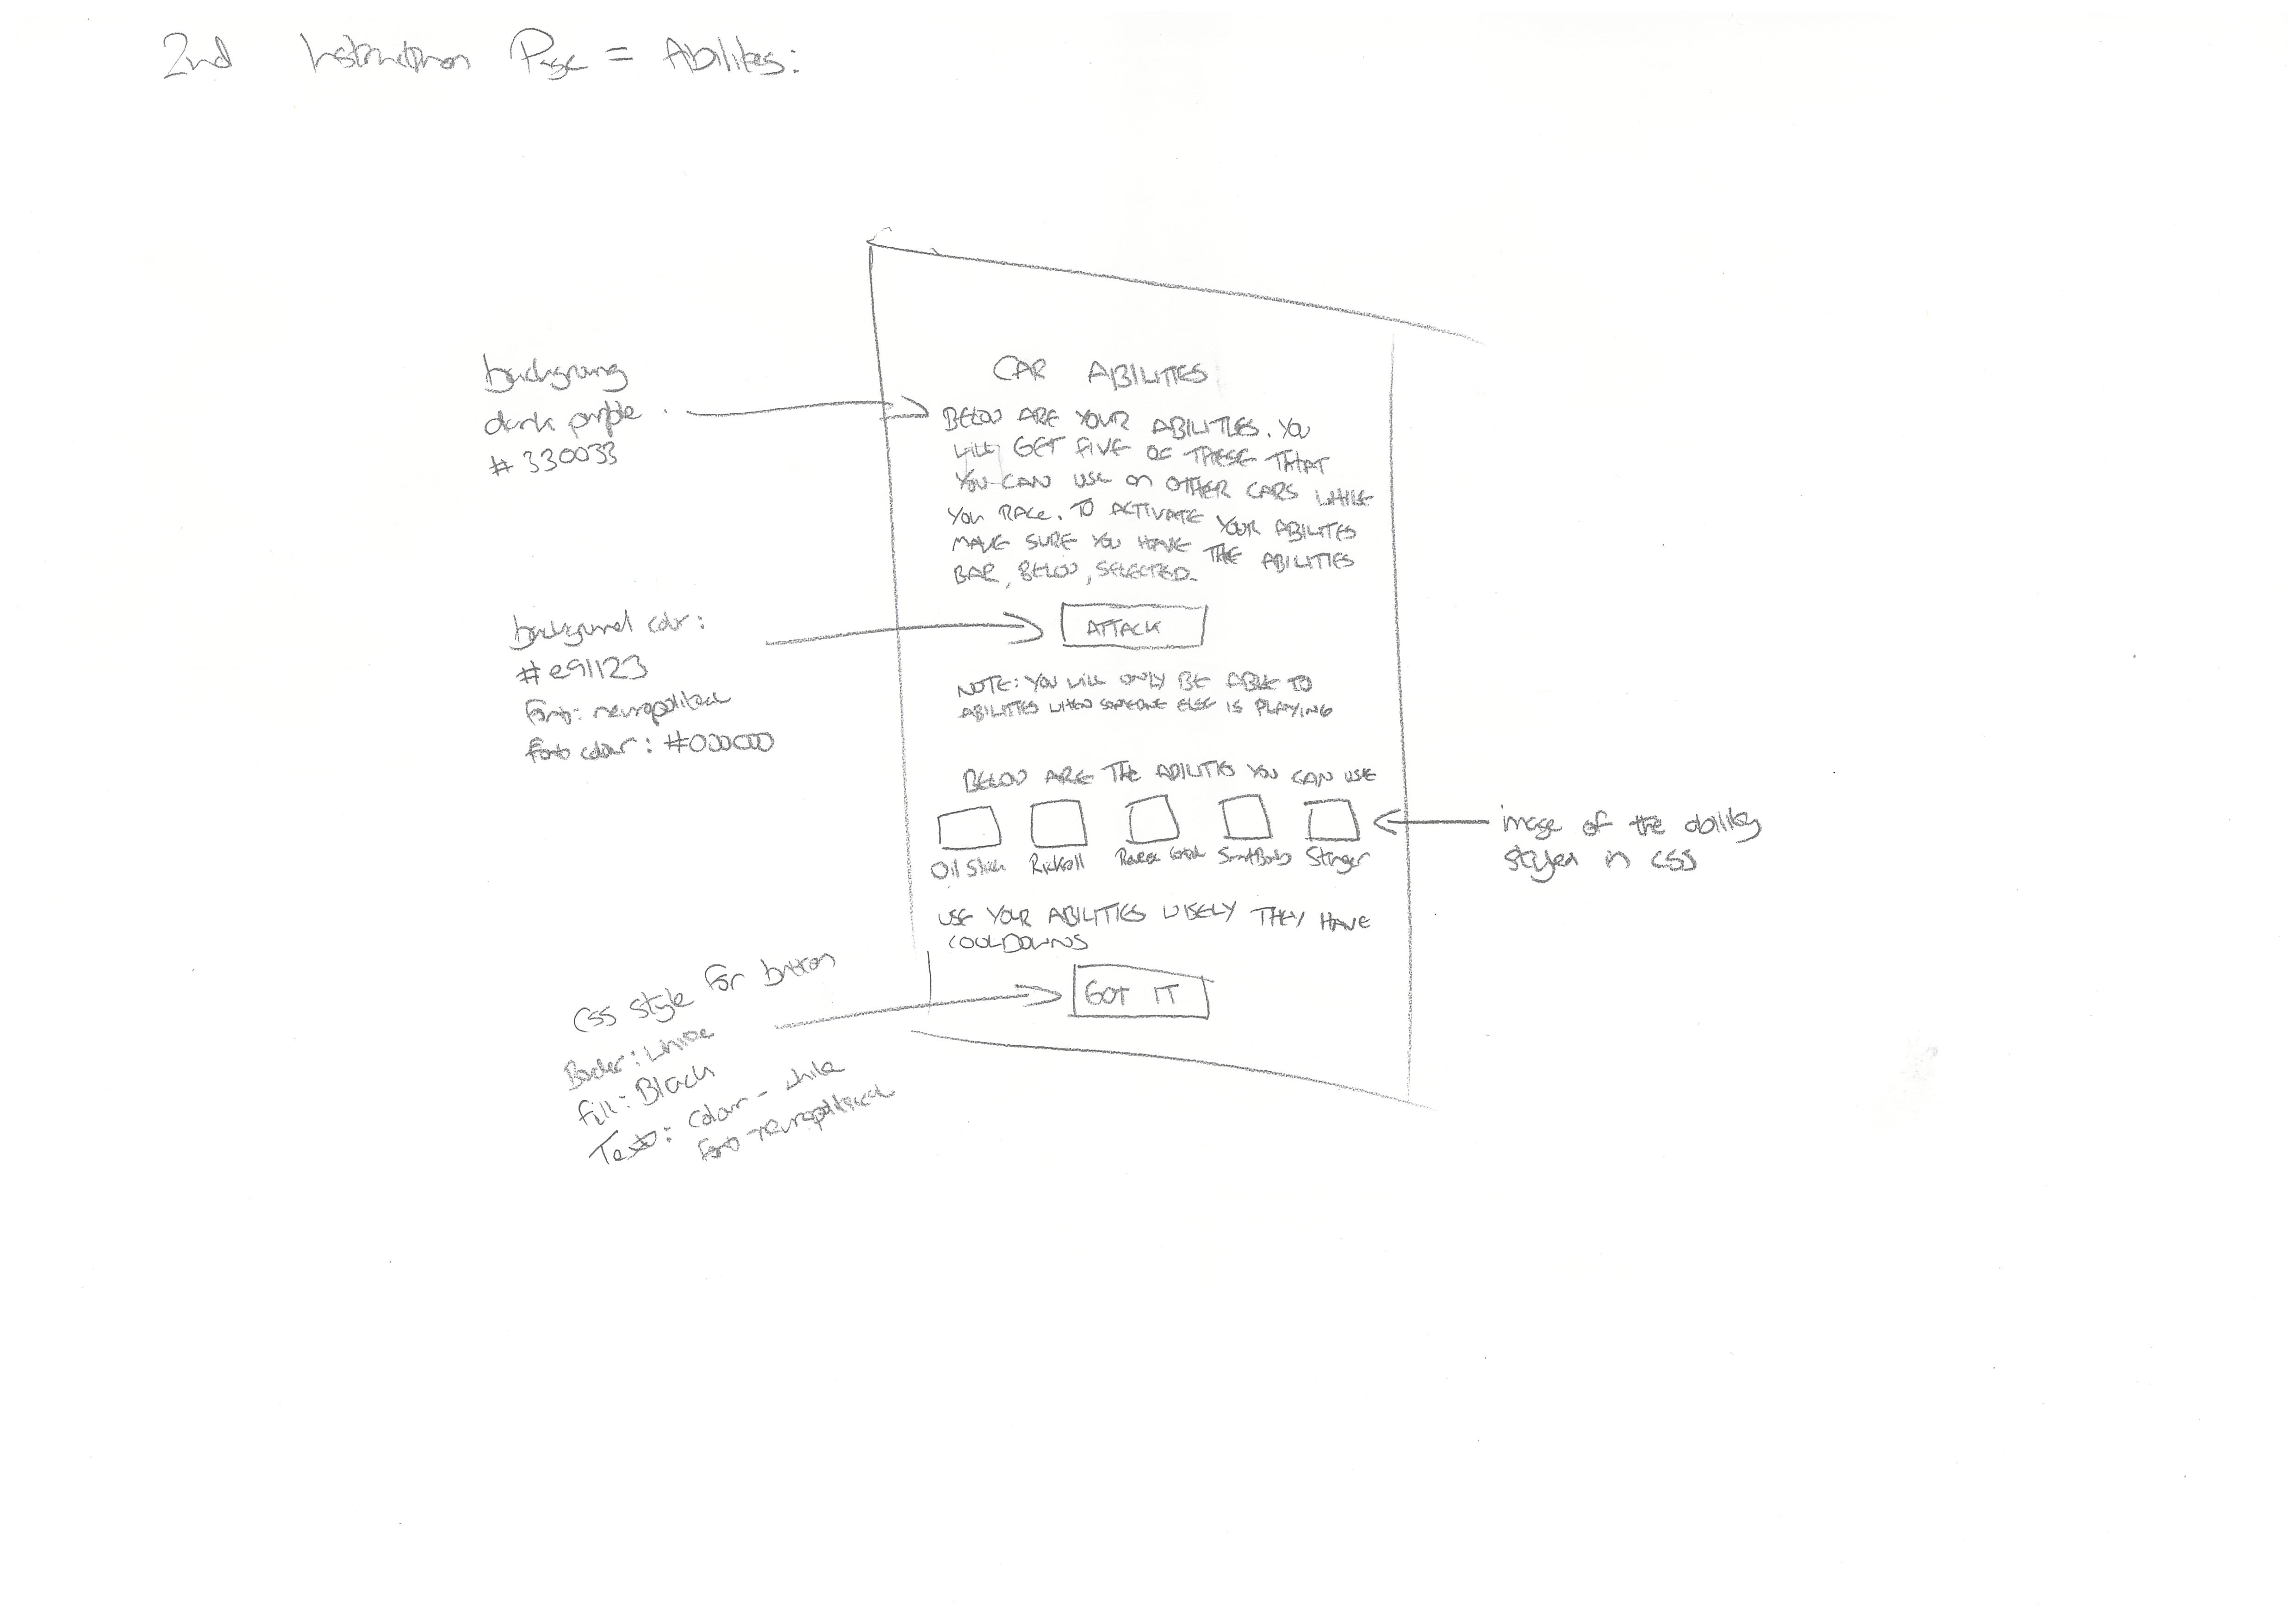 2nd Instruction Page = Abilites:
background
dark purple
# 330033
CAR ABILITIES
BELOW ARE YOUR ABILITIES. YOU
WILL GET FIVE OF THESE THAT
YOU CAN USE ON OTHER CARS WHILE
YOU RACE. TO ACTIVATE YOUR ABILITES
MAKE SURE YOU HAVE THE ABILITIES
BAR, BELOW, SELECTED.
background color:
#e91123
font: neuropolitical
font colour: #000000
ATTACK
NOTE: YOU WILL ONLY BE ABLE TO
ABILITIES WHEN SOMEONE ELSE IS PLAYING
BELOW ARE THE ABILITIES YOU CAN USE
Oil Slick Rickroll Smart Bomb Stinger
image of the ability
styled in css
USE YOUR ABILITIES WISELY THEY HAVE
COOLDOWNS
GOT IT
CSS style for button
Border: white
fill: Black
Text: colour - white
font neuropolitical